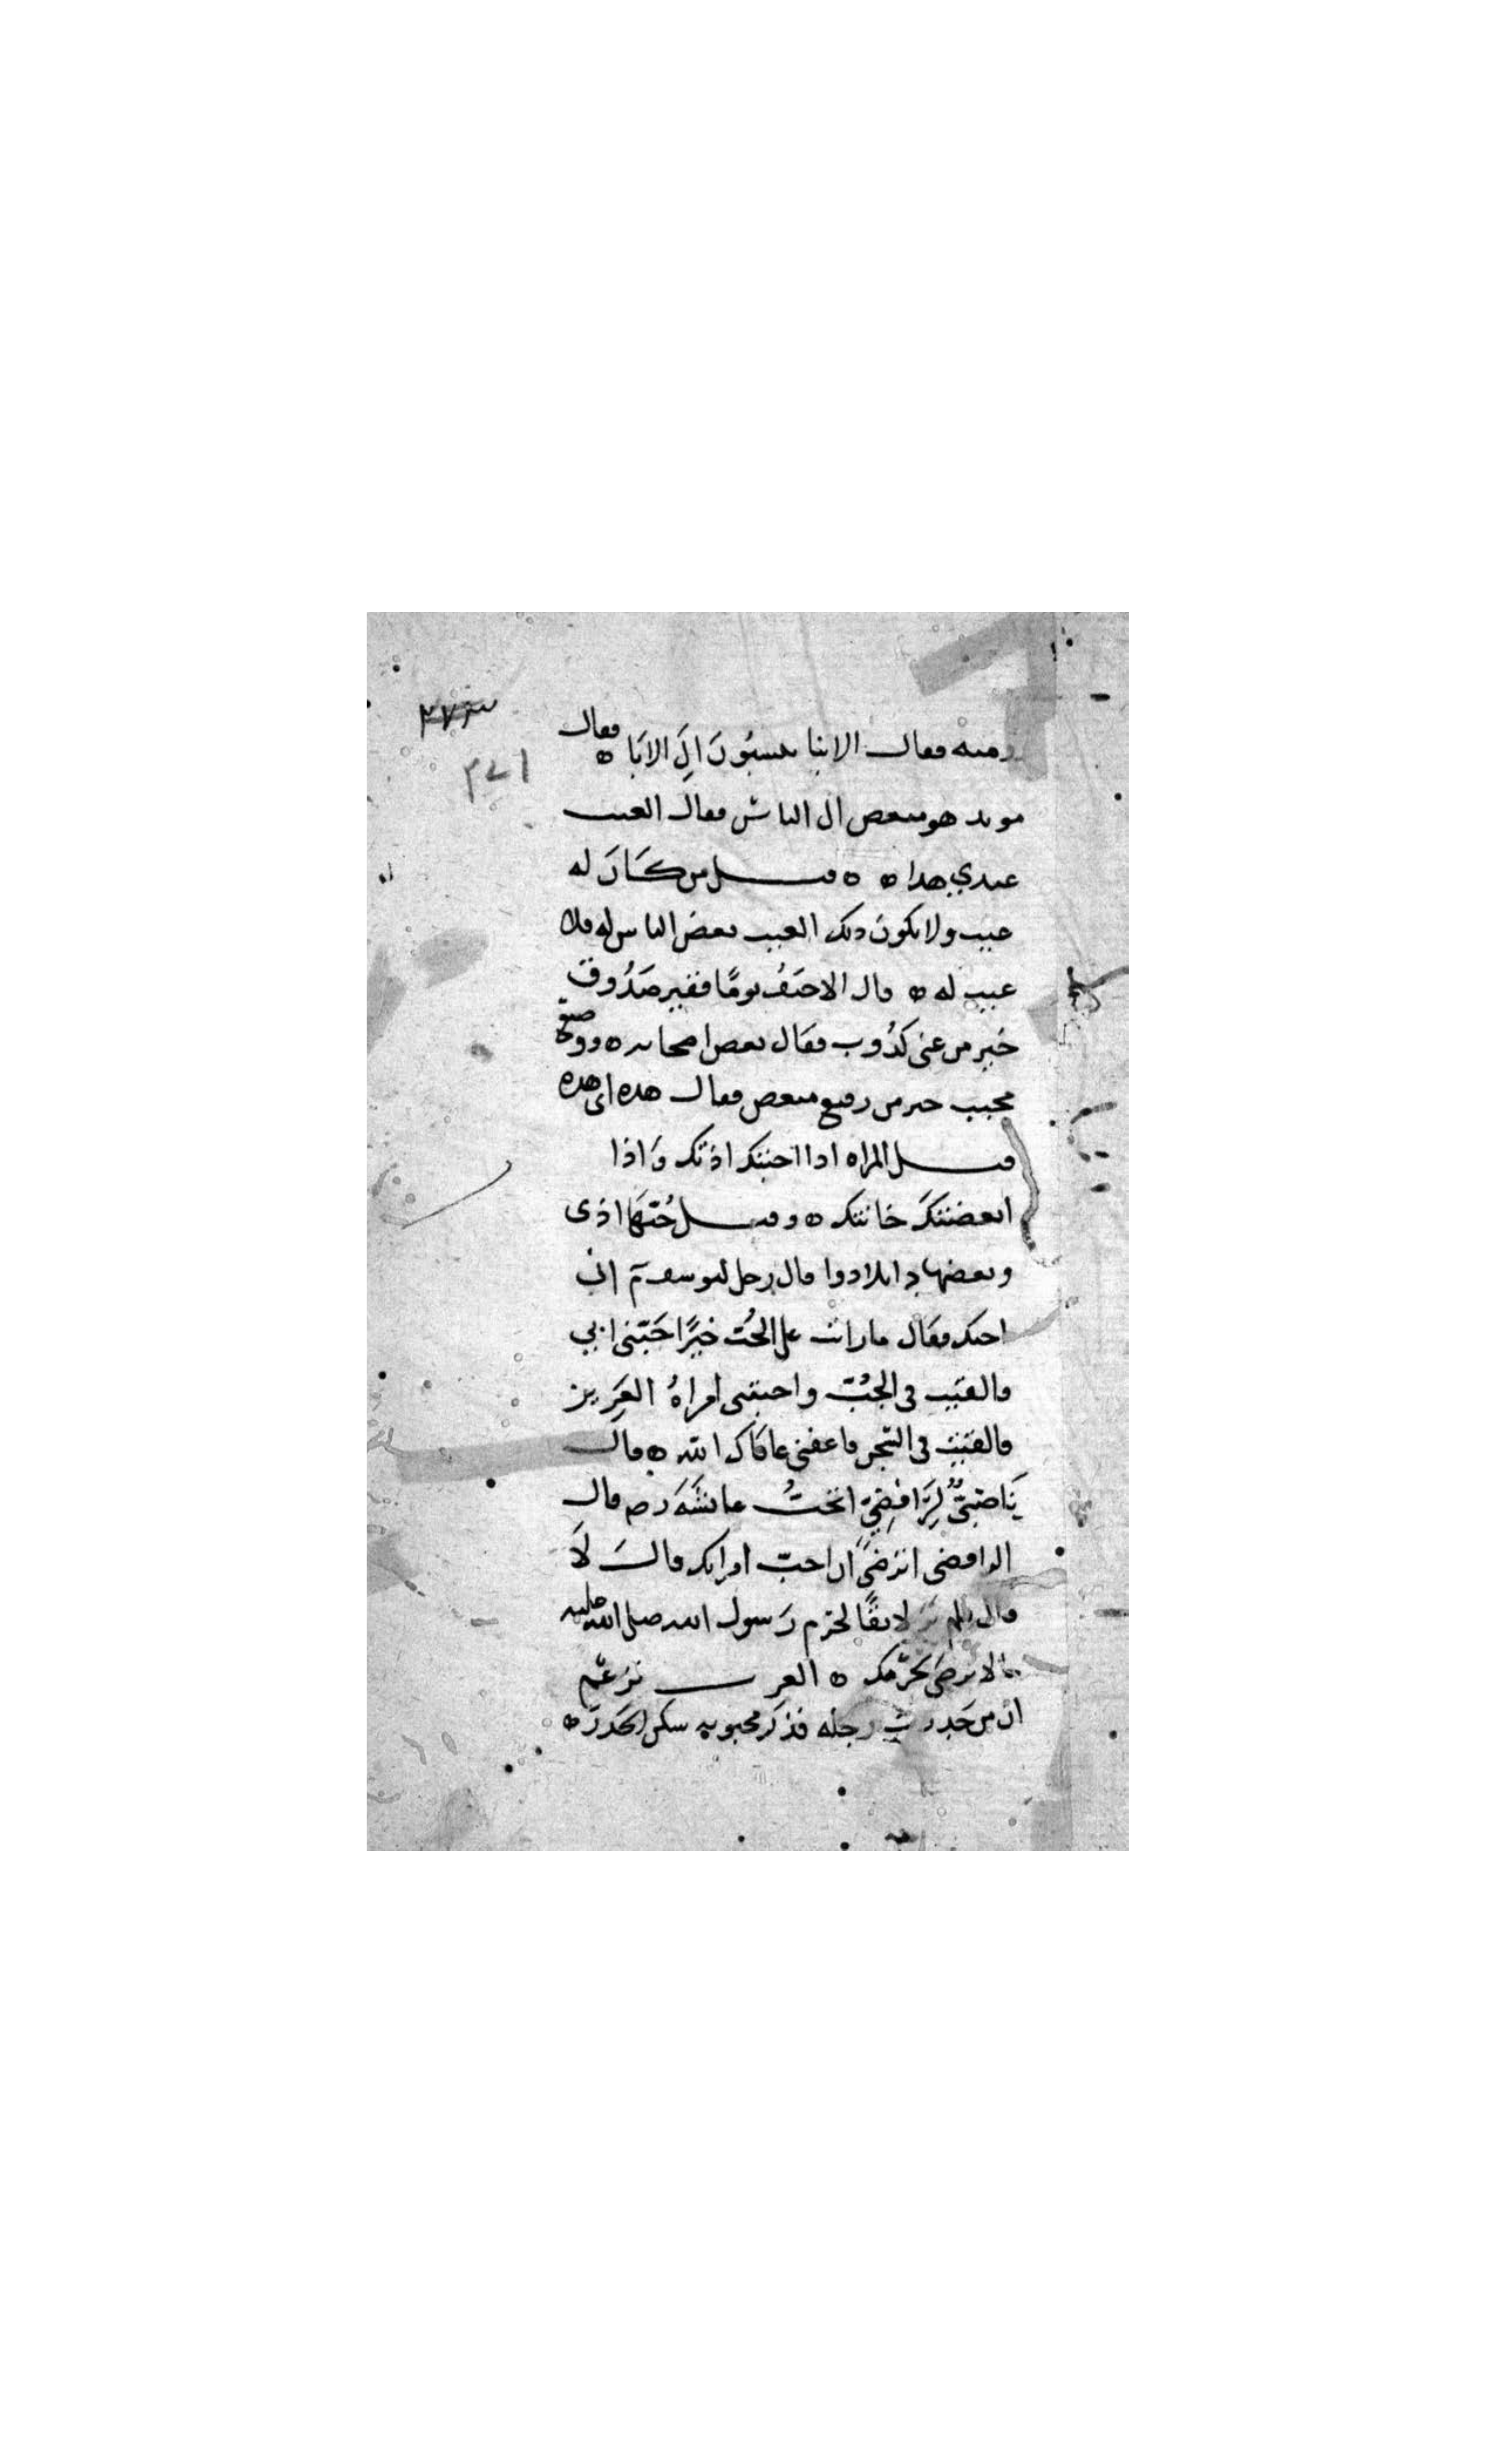 رومية فقال الابنا ينسبُونَ الَى الابَا ه فقال
موبد هو مبغض الى الناس فقال العيب
عندي هذا ه ه قيل من كَانَ له
عيب ولا يكون ذلك العيب بغض الناس له فلا
عيب له ه قال الاحنَفُ يومًا فقير صَدُوق
خير من غنى كذُوب فقال بعض اصحابه ه ووضيع
محبب خير من رفيع مبغض فقال هذه اى هذه
قيل المراه اذا احبتك اذتك وَاذا
ابغضتكَ خانتك ه وقيل حُبّهَا اذى
وبغضها دا بلا دوا قال رجل ليوسف ع م انى
احبك فقال ما رايت على الحُبّ خيرًا احَبّنى ابي
فالقيت فى الجُبّ واحبتنى امراةُ العَزيز
فالقيت فى السّجن فاعفنى عافاكَ الله ه قال
نَاصبىٌّ لِرَافِضِيّ اتحبُّ عائشَةَ رض قال
الرافضى اترضىَ ان احبّ امراتك قال لَا
قال فلم تَرَ لائقًا لحرَم رَسول الله صلى الله عليه
ما لا ترضىَ لحرَمك ه العرب تزعُم
ان من خَدِرت رجله فذكَر محبوبه سكن الخَدَرُ ه
٢٧٣